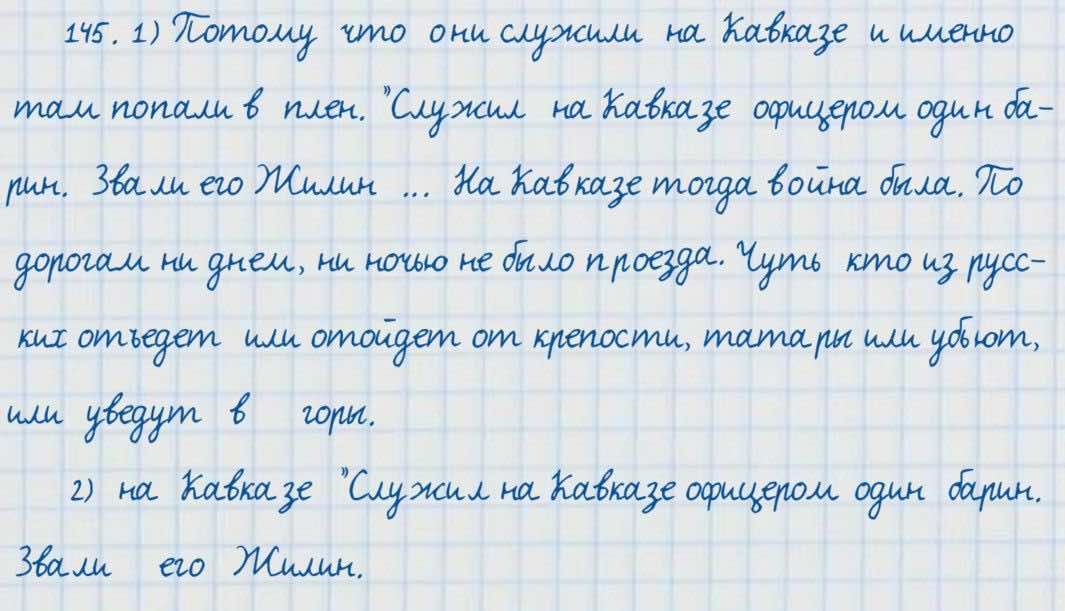 145. 1) Потому что они служили на Кавказе и именно
там попали в плен. "Служил на Кавказе офицером один ба-
рин. Звали его Жилин ... На Кавказе тогда война была. По
дорогам ни днем, ни ночью не было проезда. Чуть кто из русс-
ких отъедет или отойдет от крепости, татары или убьют,
или уведут в горы.
2) на Кавказе "Служил на Кавказе офицером один барин.
Звали его Жилин.